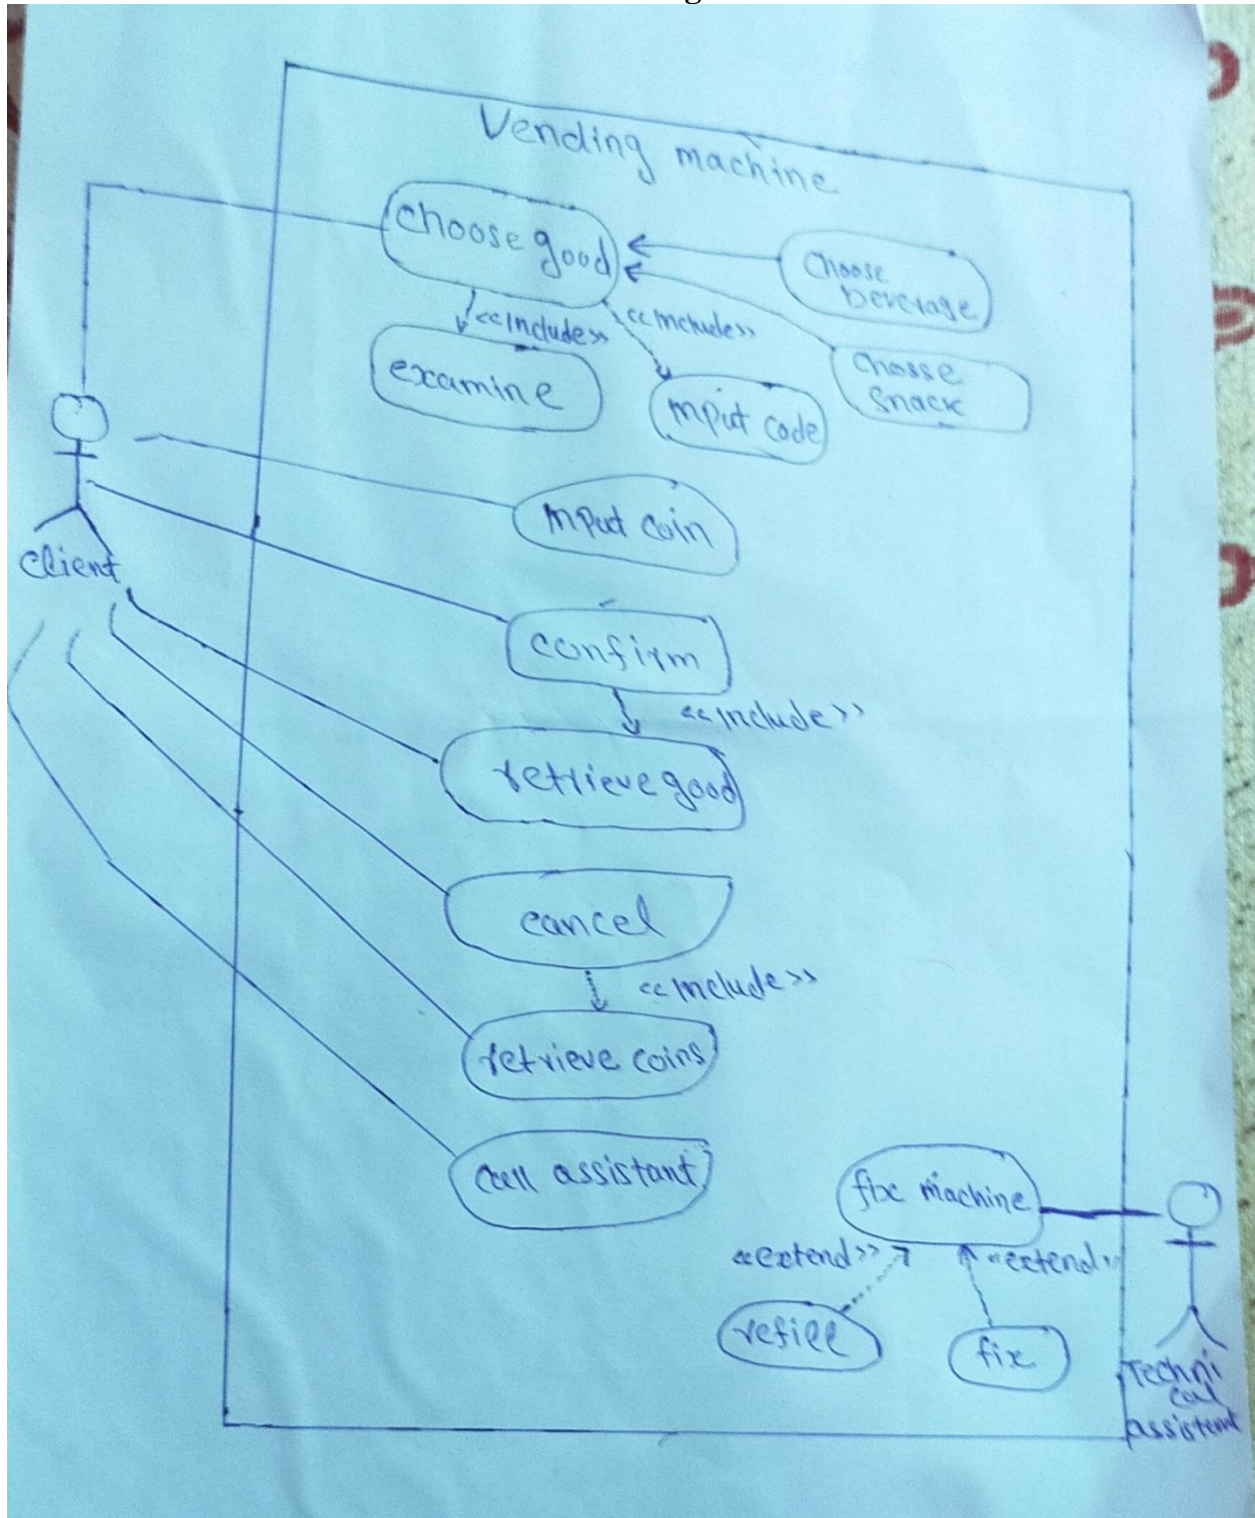 Vending machine
choose good
Choose
beverage
<<include>>
<<include>>
examine
input code
Chosse
Snack
input coin
client
confirm
<<include>>
retrieve good
cancel
<<include>>
retrieve coins
call assistant
fix machine
<<extend>>
<<extend>>
refill
fix
Techni
cal
assistent